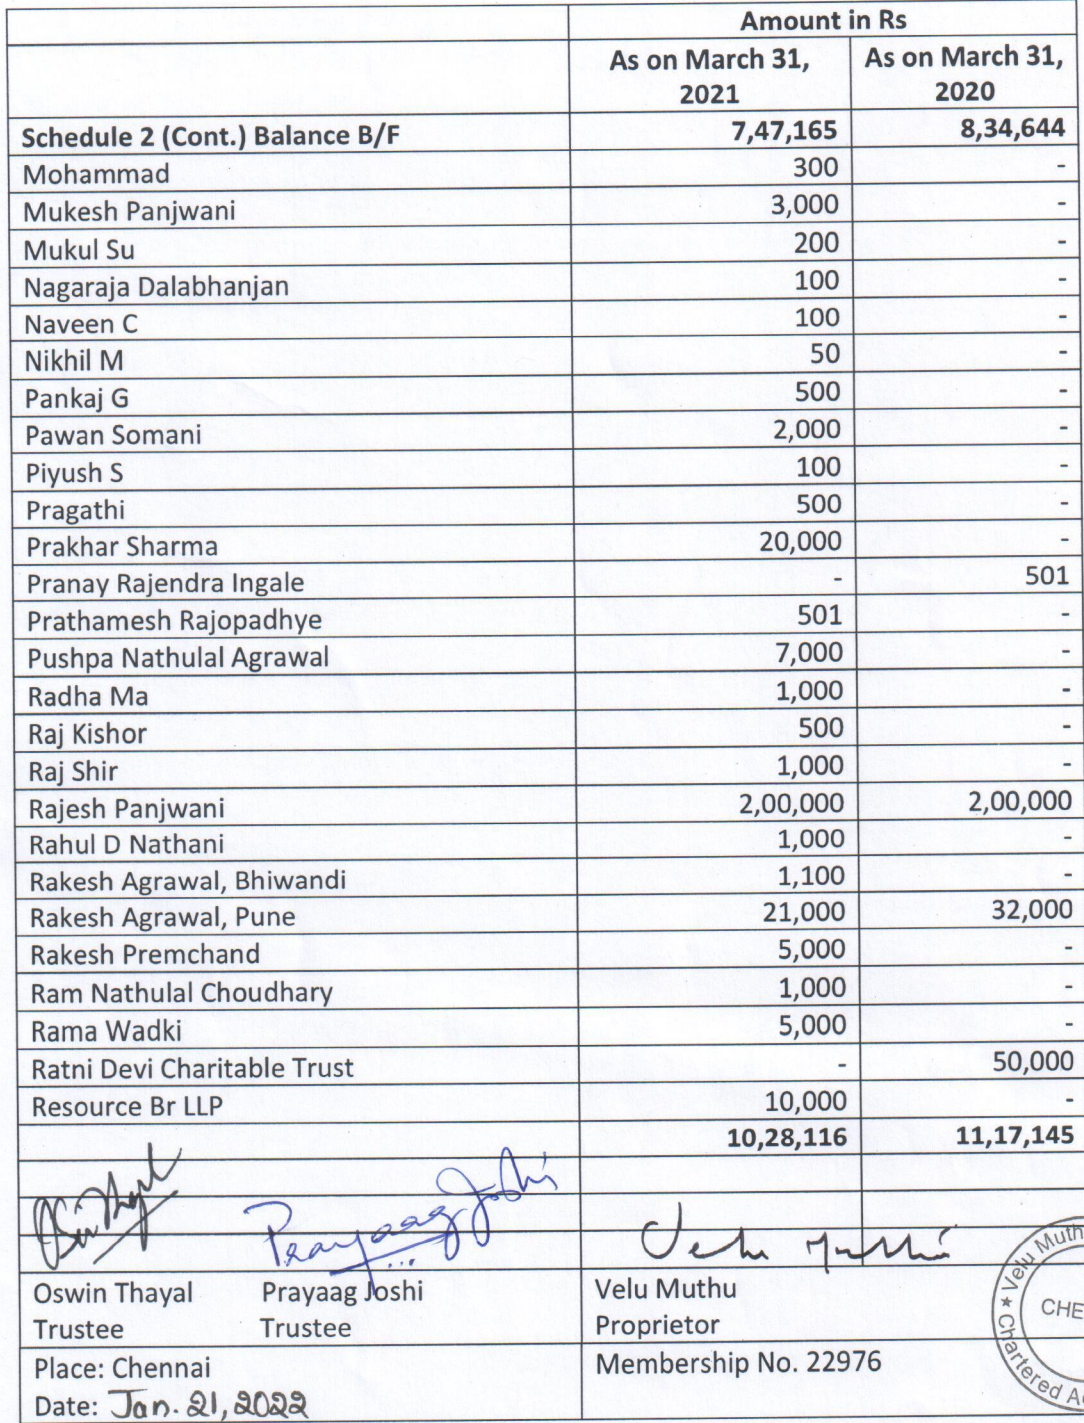 Amount in Rs
As on March 31, 2021 As on March 31, 2020
Schedule 2 (Cont.) Balance B/F 7,47,165 8,34,644
Mohammad 300 -
Mukesh Panjwani 3,000 -
Mukul Su 200 -
Nagaraja Dalabhanjan 100 -
Naveen C 100 -
Nikhil M 50 -
Pankaj G 500 -
Pawan Somani 2,000 -
Piyush S 100 -
Pragathi 500 -
Prakhar Sharma 20,000 -
Pranay Rajendra Ingale - 501
Prathamesh Rajopadhye 501 -
Pushpa Nathulal Agrawal 7,000 -
Radha Ma 1,000 -
Raj Kishor 500 -
Raj Shir 1,000 -
Rajesh Panjwani 2,00,000 2,00,000
Rahul D Nathani 1,000 -
Rakesh Agrawal, Bhiwandi 1,100 -
Rakesh Agrawal, Pune 21,000 32,000
Rakesh Premchand 5,000 -
Ram Nathulal Choudhary 1,000 -
Rama Wadki 5,000 -
Ratni Devi Charitable Trust - 50,000
Resource Br LLP 10,000 -
10,28,116 11,17,145
Prayaag Joshi Velu Muthu
Oswin Thayal Prayaag Joshi Velu Muthu
Trustee Trustee Proprietor
Place: Chennai Membership No. 22976
Date: Jan. 21, 2022
★ Velu Muth
CHE
Chartered Ac